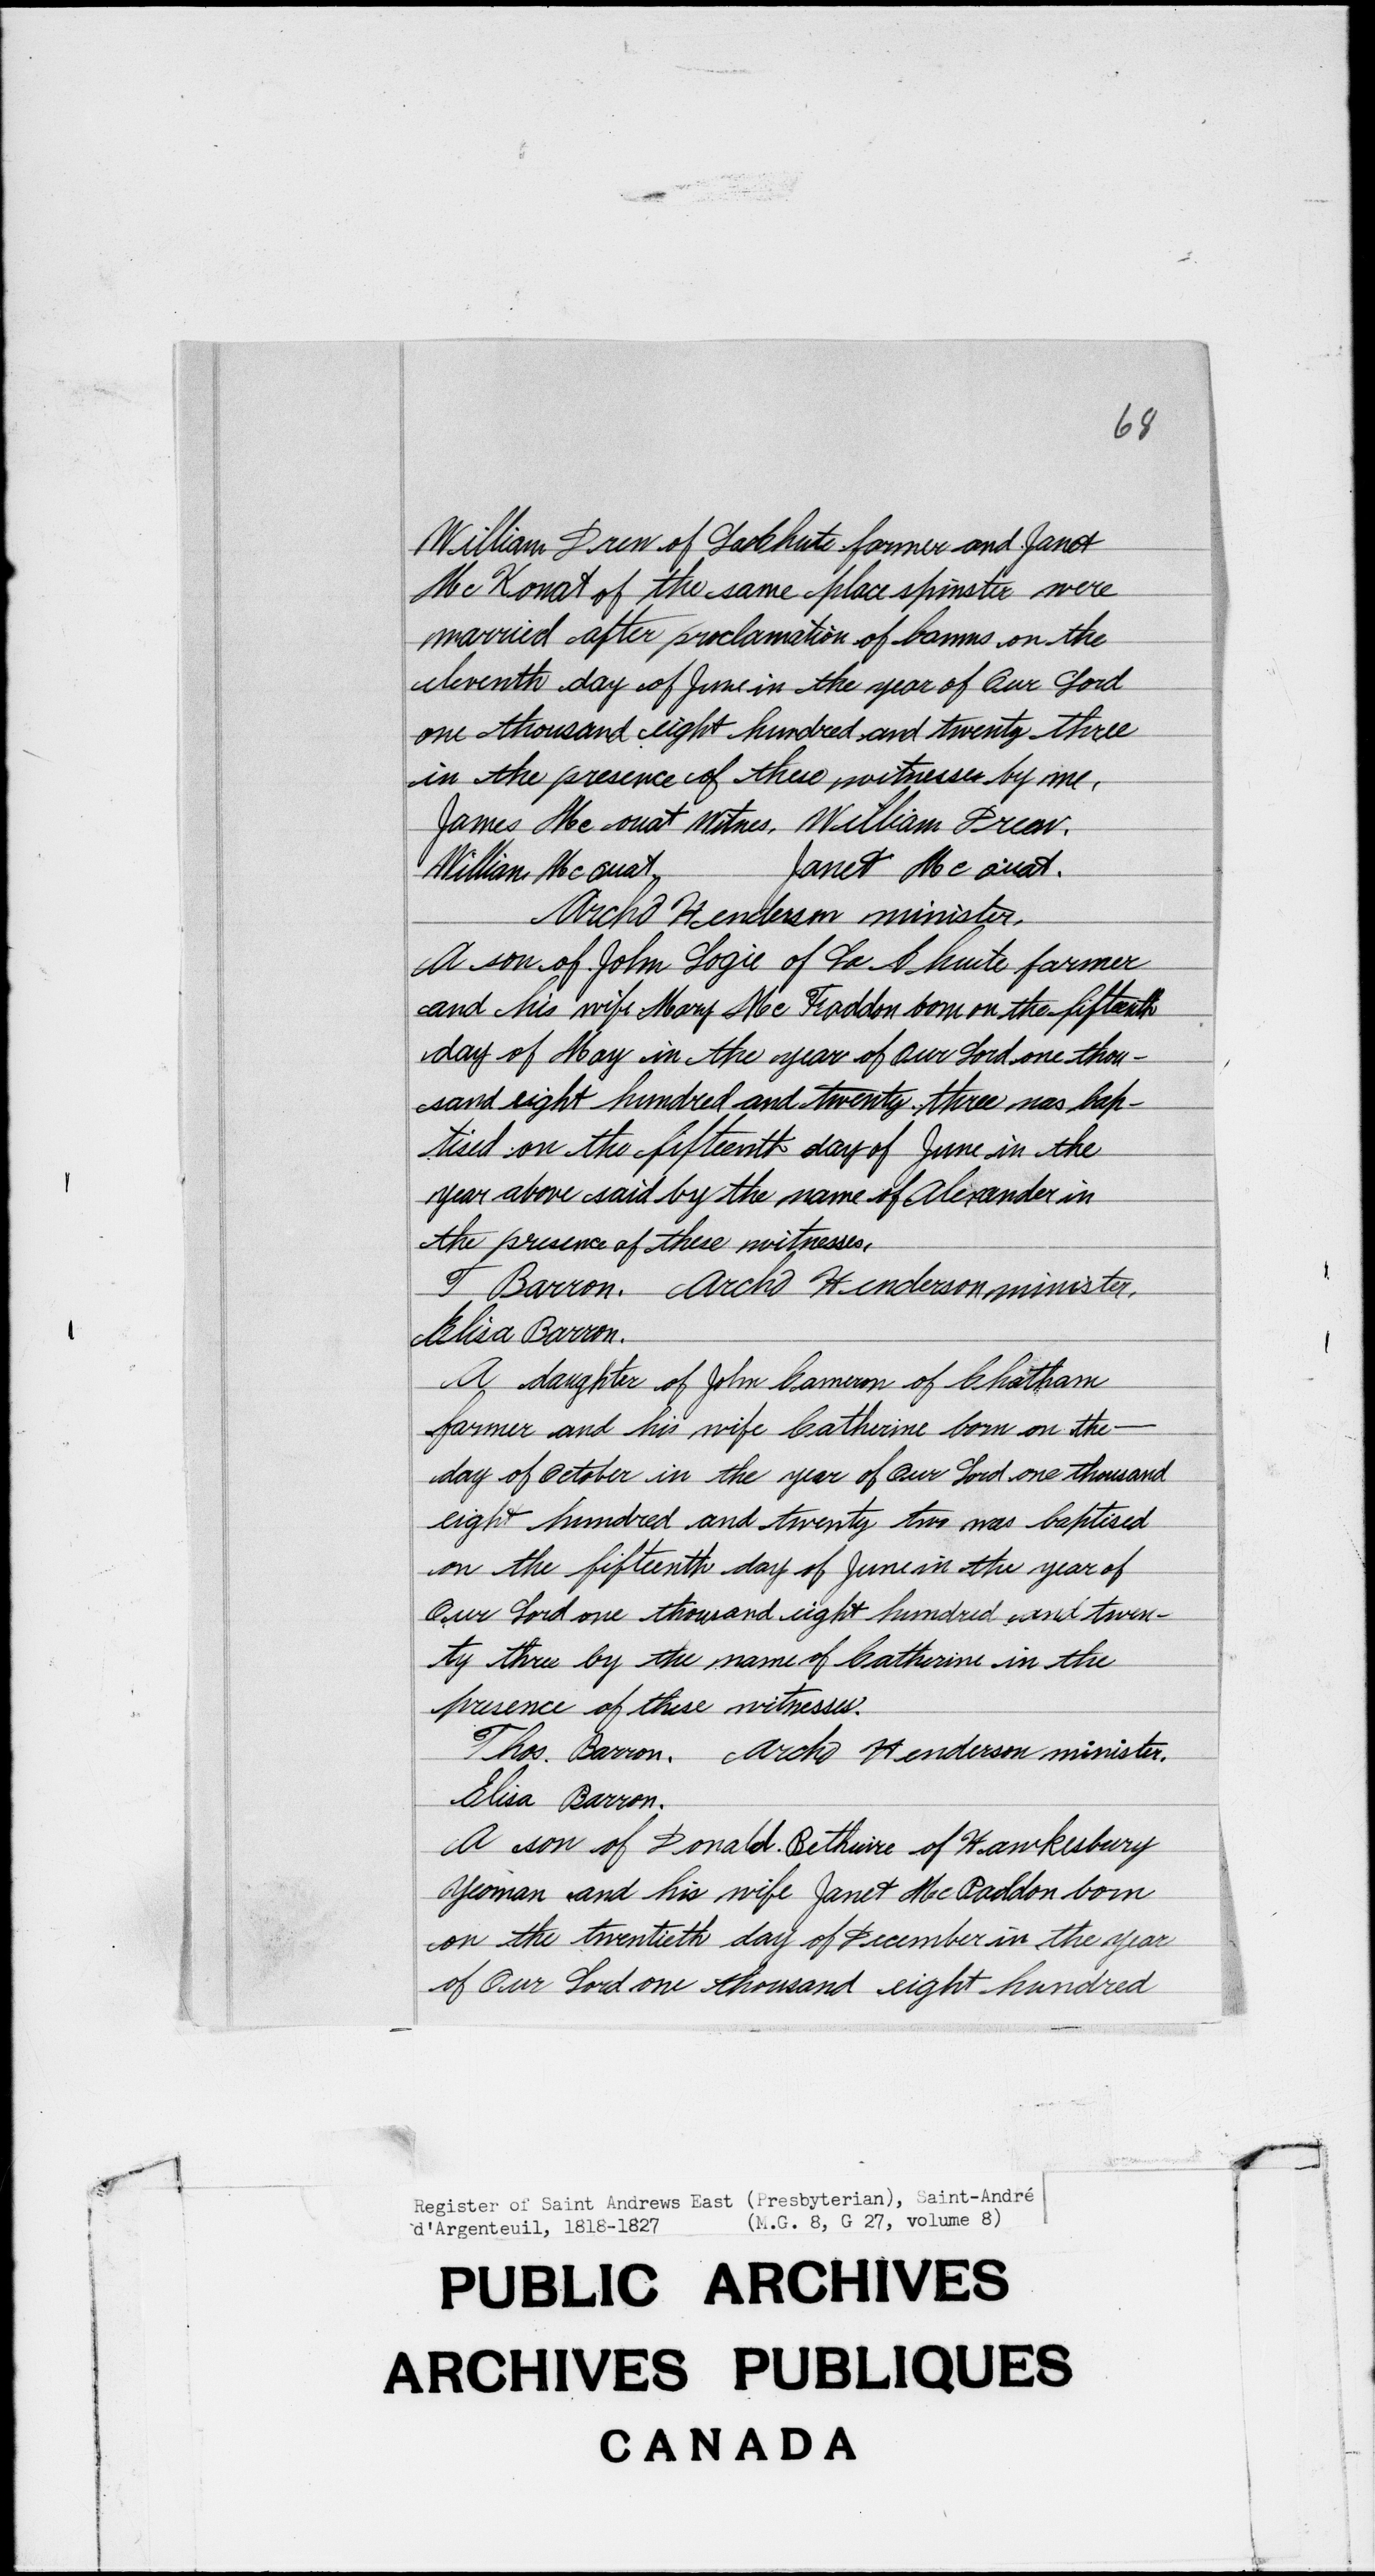 68
William Drew of Lachute farmer and Janet
Mc Konat of the same place spinster were
married after proclamation of banns on the
eleventh day of June in the year of Our Lord
one thousand eight hundred and twenty three
in the presence of these witnesses by me.
James Mc ouat Witnes. William Drew.
William Mc ouat, Janet Mc ouat.
Archd Henderson minister.
A son of John Logie of La Chute farmer
and his wife Mary Mc Fraddon born on the fifteenth
day of May in the year of Our Lord one thou-
sand eight hundred and twenty three was bap-
tised on the fifteenth day of June in the
year above said by the name of Alexander in
the presence of these witnesses.
T Barron. Archd Henderson minister.
Elisa Barron.
A daughter of John Cameron of Chatham
farmer and his wife Catherine born on the —
day of October in the year of Our Lord one thousand
eight hundred and twenty two was baptised
on the fifteenth day of June in the year of
Our Lord one thousand eight hundred and twen-
ty three by the name of Catherine in the
presence of these witnesses.
Thos. Barron. Archd Henderson minister.
Elisa Barron.
A son of Donald Bethuire of Hawkesbury
yeoman and his wife Janet Mc Paddon born
on the twentieth day of December in the year
of Our Lord one thousand eight hundred
Register of Saint Andrews East (Presbyterian), Saint-André
d'Argenteuil, 1818-1827 (M.G. 8, G 27, volume 8)
PUBLIC ARCHIVES
ARCHIVES PUBLIQUES
CANADA